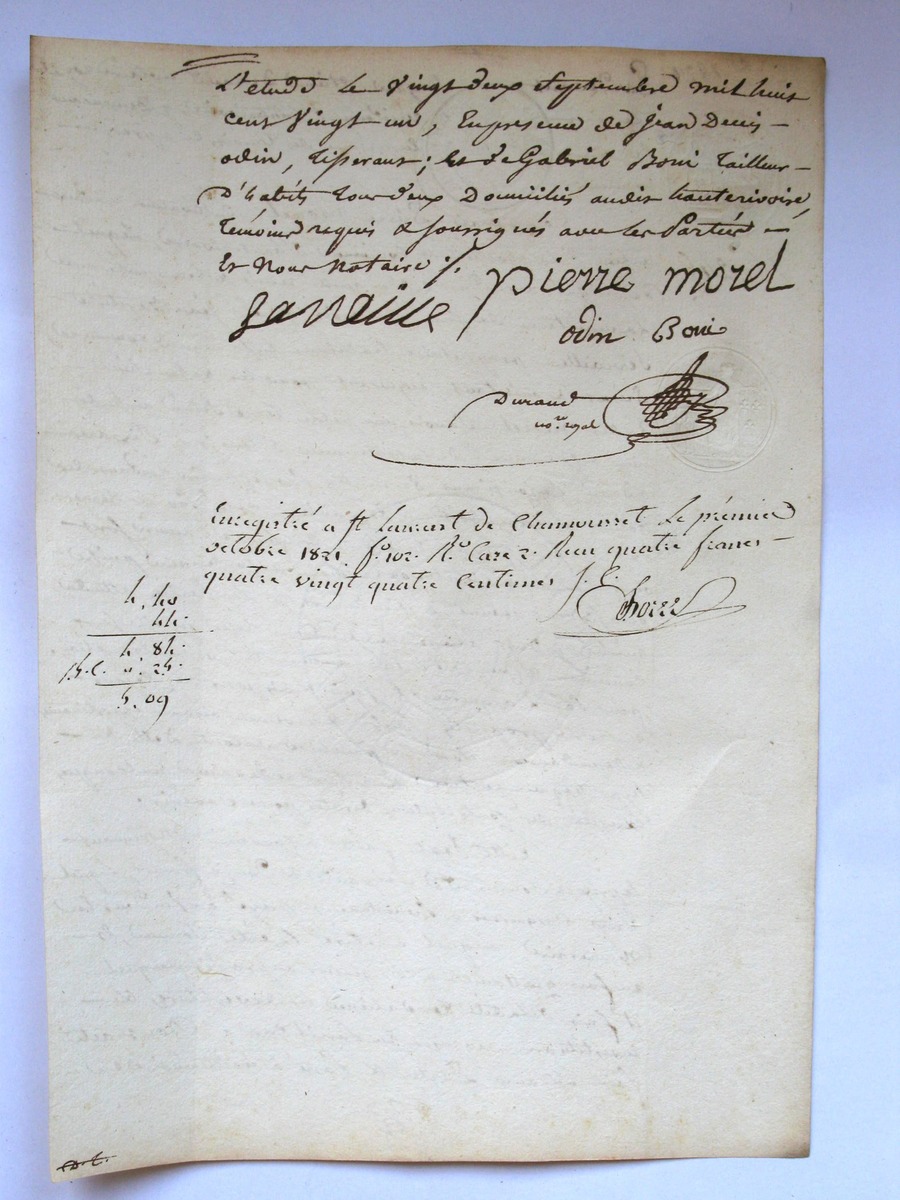 D'etude le vingt deux Septembre mil huit
cent vingt un, En presence de Jean Denis
odin, Tisserant; Et de Gabriel Boni Tailleur
D'habits tous deux Domiciliés audit hauterivoire,
Témoins requis & soussignés avec les Parties
Et Nous Notaire ./.
pierre morel
odin Boni
Durand
no.re royal
Enregistré a St Laurent de Chamousset Le prémier
octobre 1821. f° 102. R.° Case 2. Recu quatre francs
quatre vingt quatre Centimes
4. 40
44.
4. 84.
25.
5. 09